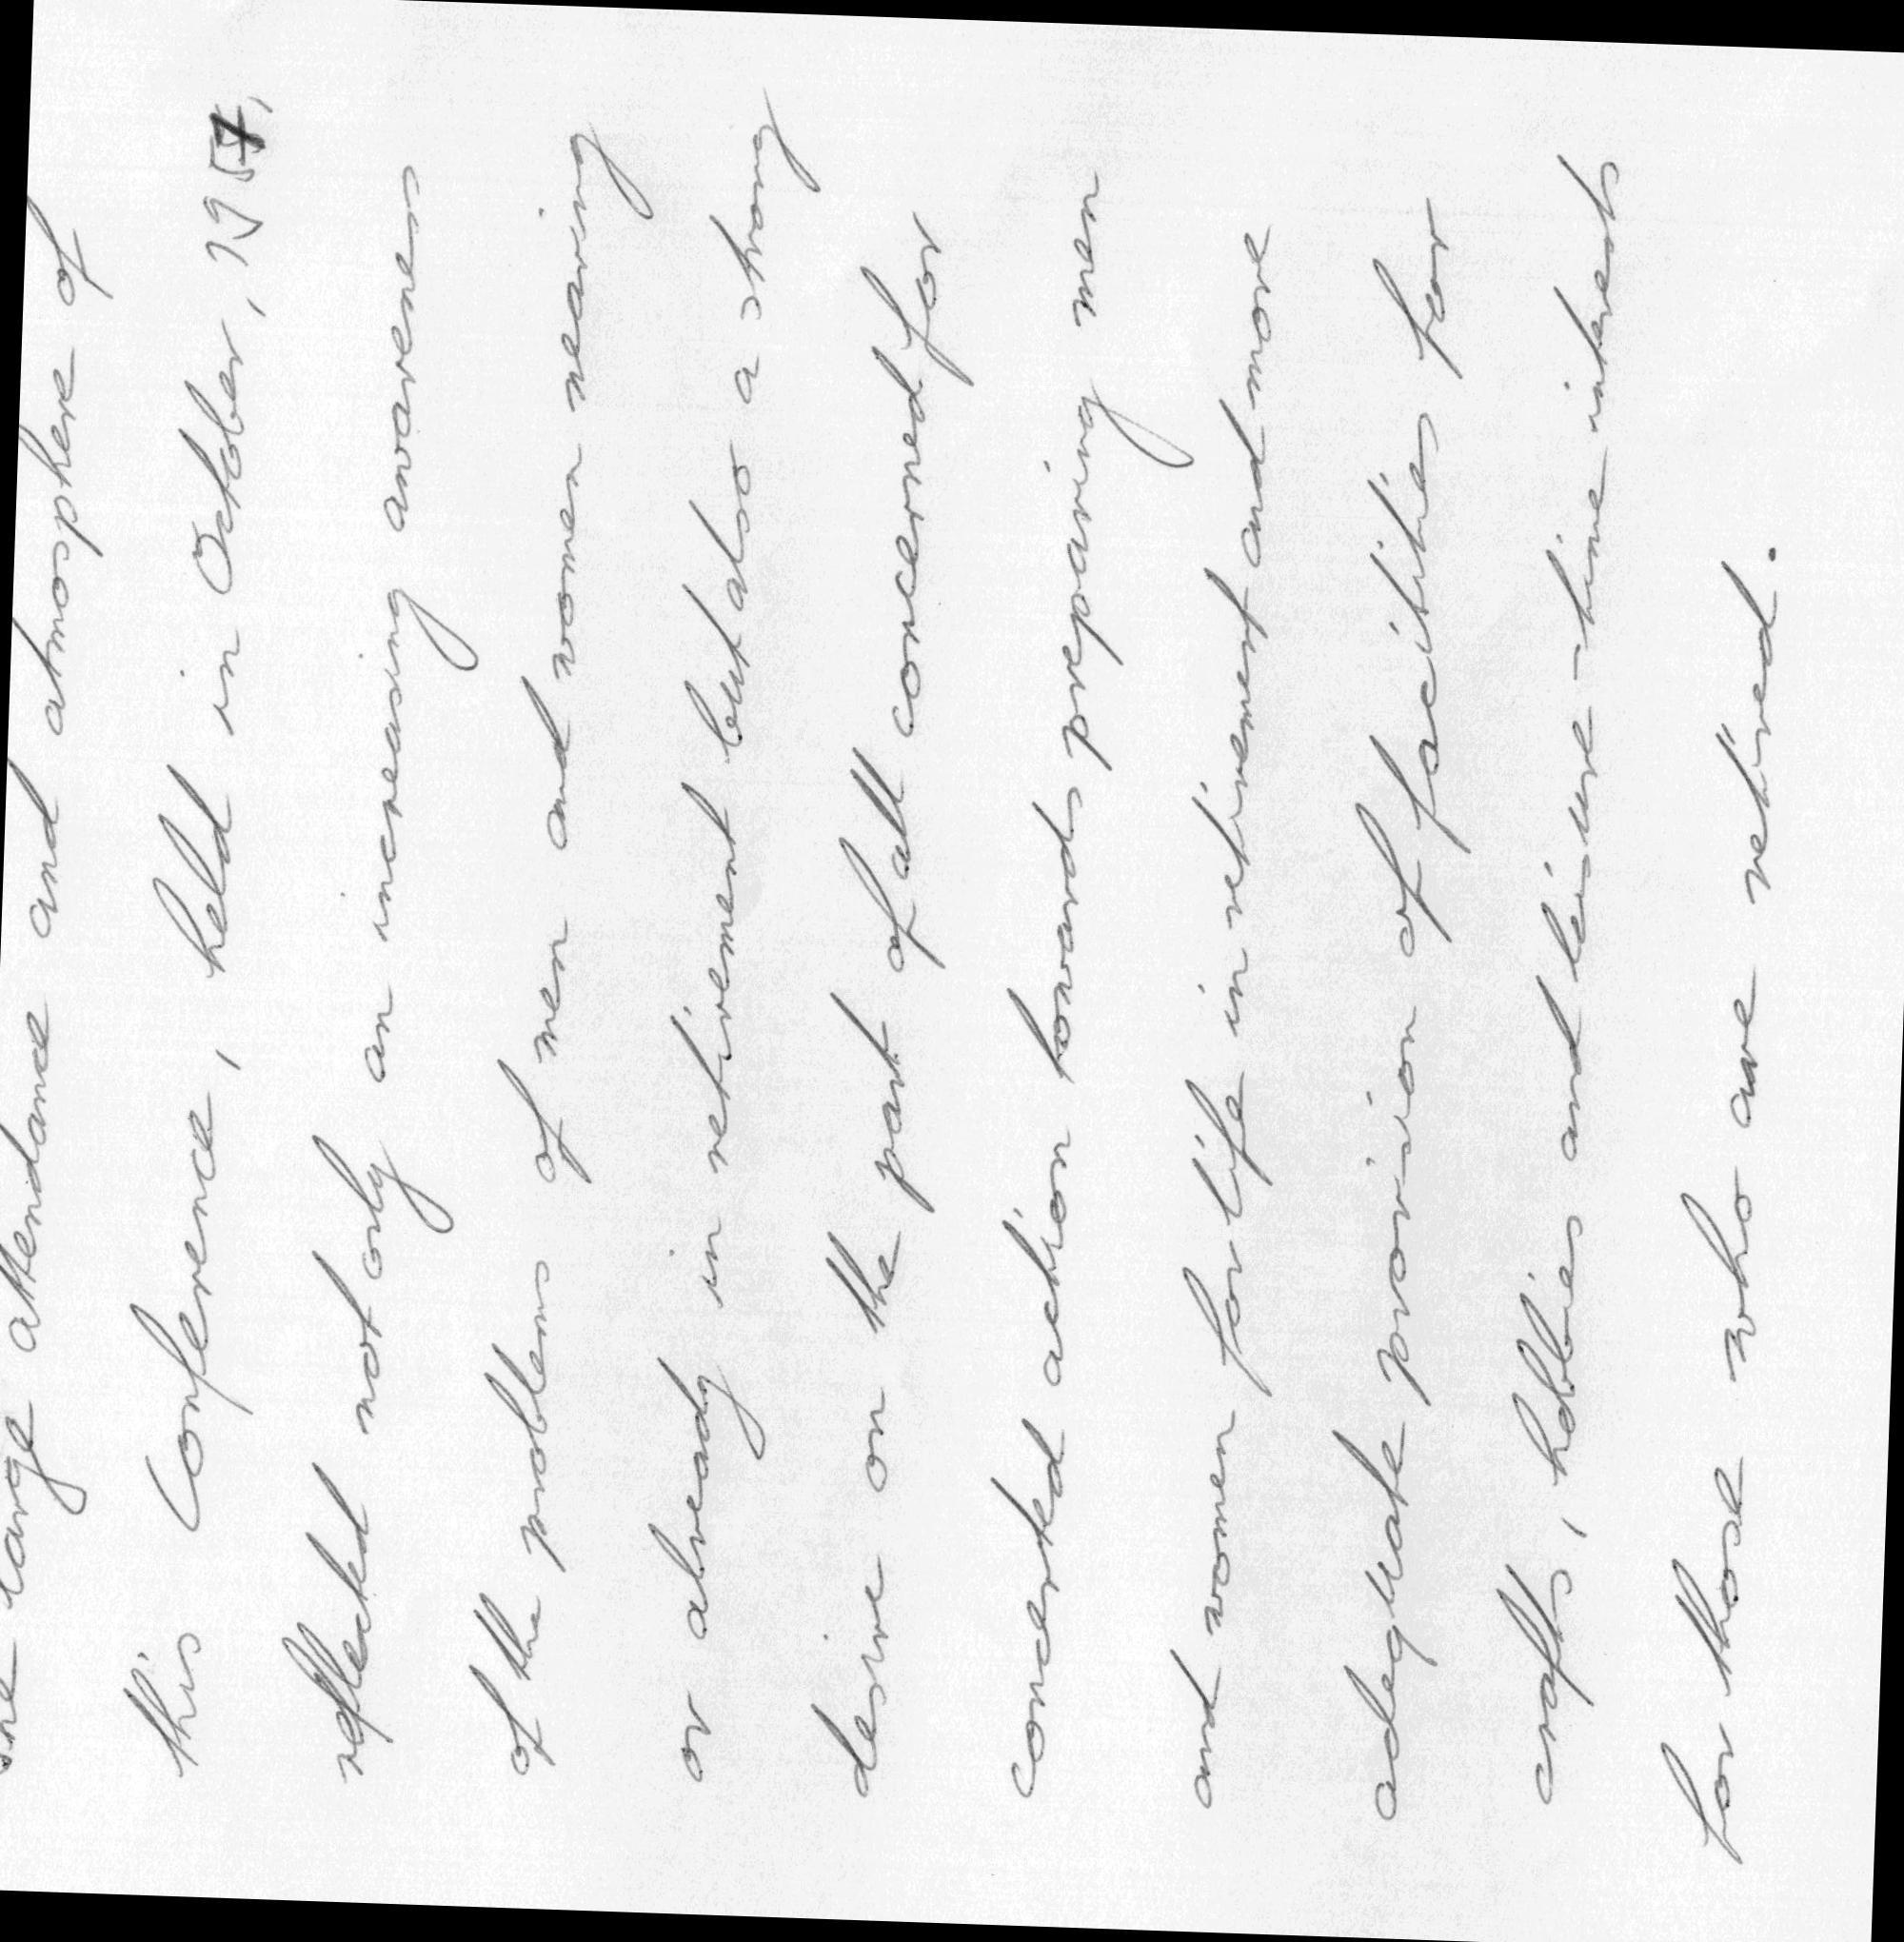 The large attendance and atmosphere of
this Conference, held in October, 1957,
reflected not only an increasing awareness
of the problems of men and women nearing
or already in retirement but also a strong
desire on the part of all concerned for
concerted action towards preparing men
and women for life in retirement and more
adequate provision of facilities for
crafts, hobbies and leisure-time interests
for those who are retired.